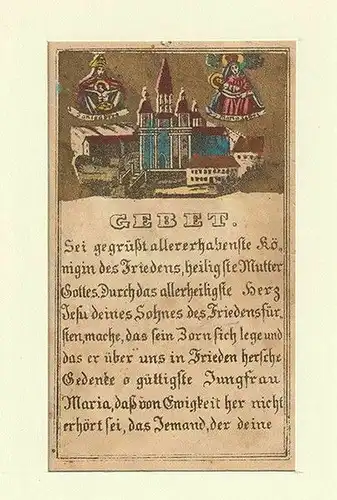 GEBET.
Sei gegrüßt allererhabenste Kö,
nigin des Friedens, heiligste Mutter
Gottes. Durch das allerheiligste Herz
Jesu deines Sohnes des Friedensfür,
sten, mache, das sein Zorn sich lege und
das er über uns in Frieden hersche
Gedenke o güttigste Jungfrau
Maria, daß von Ewigkeit her nicht
erhört sei, das Jemand, der deine